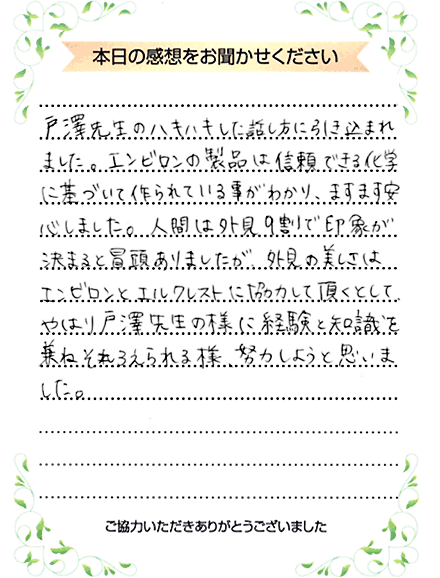 本日の感想をお聞かせください
戸澤先生のハキハキした話し方に引き込まれ
ました。エンビロンの製品は信頼できる化学
に基づいて作られている事がわかり、ますます安
心しました。人間は外見9割で印象が
決まると冒頭ありましたが、外見の美しさは
エンビロンとエルクレストに協力して頂くとして
やはり戸澤先生の様に経験と知識を
兼ねそろえられる様、努力しようと思いま
した。
ご協力いただきありがとうございました